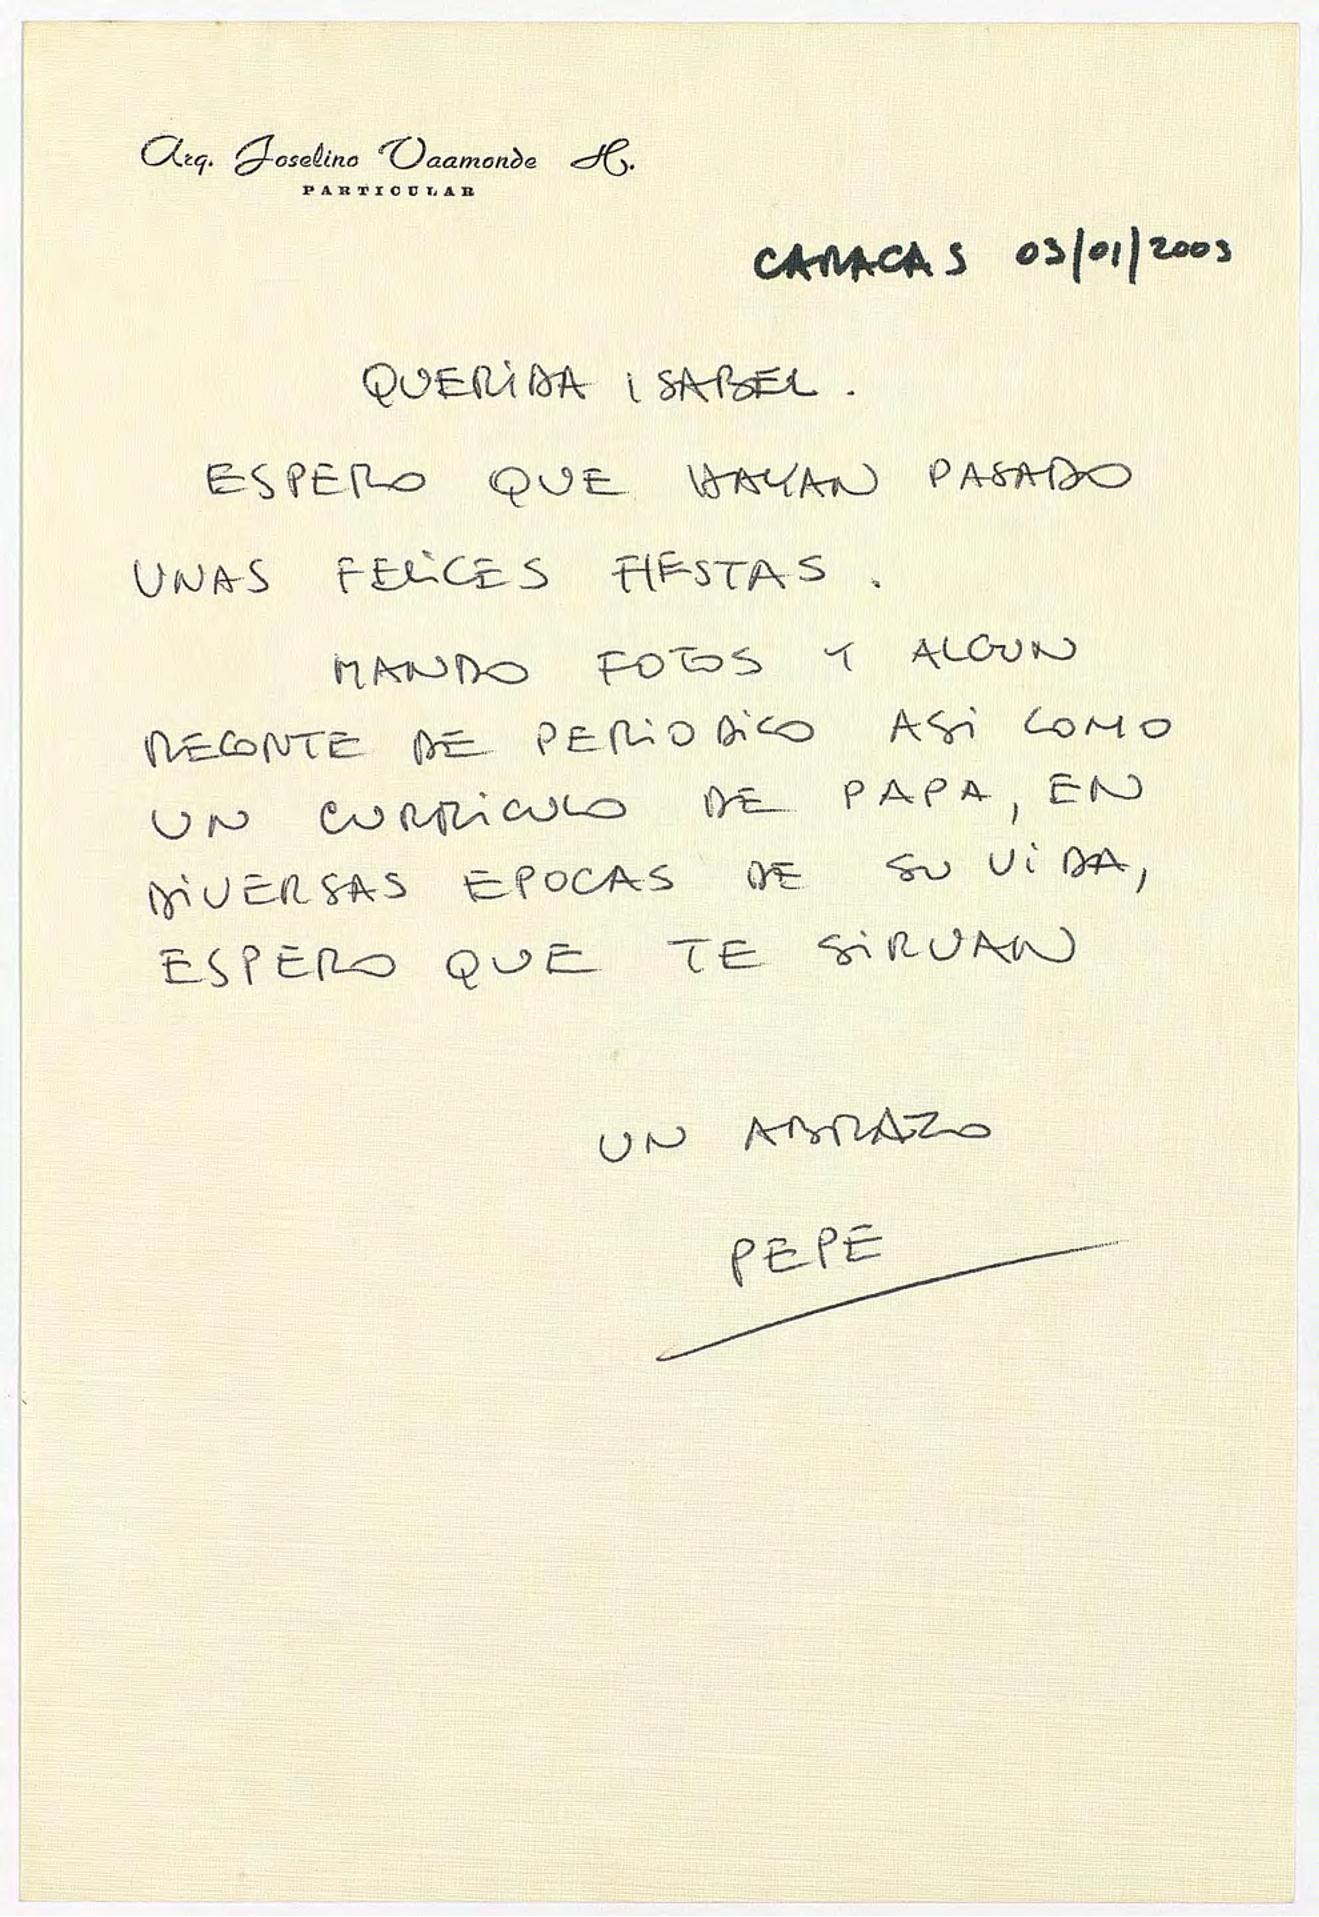 Arq. Joselino Vaamonde H.
PARTICULAR
CARACAS 03/01/2003
QUERIDA ISABEL.
ESPERO QUE HAYAN PASADO
UNAS FELICES FIESTAS.
MANDO FOTOS Y ALGUN
RECORTE DE PERIODICO ASI COMO
UN CURRICULO DE PAPA, EN
DIVERSAS EPOCAS DE SU VIDA,
ESPERO QUE TE SIRVAN
UN ABRAZO
PEPE